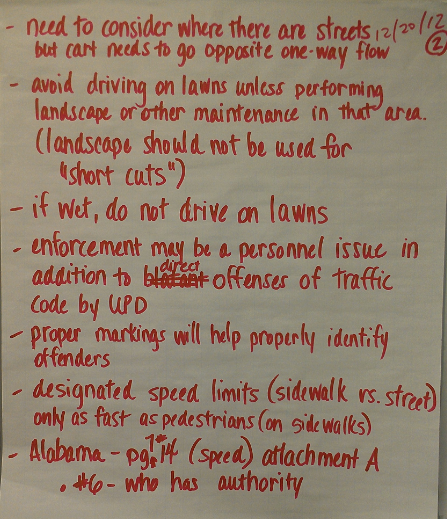 - need to consider where there are streets 12/20/12
but cart needs to go opposite one-way flow 2
- avoid driving on lawns unless performing
landscape or other maintenance in that area.
(landscape should not be used for
"short cuts")
- if wet, do not drive on lawns
- enforcement may be a personnel issue in
direct
addition to blatant offenses of traffic
code by UPD
- proper markings will help properly identify
offenders
- designated speed limits (sidewalk vs. street)
only as fast as pedestrians (on sidewalks)
- Alabama - pg. 14 (speed) attachment A
. #6 - who has authority